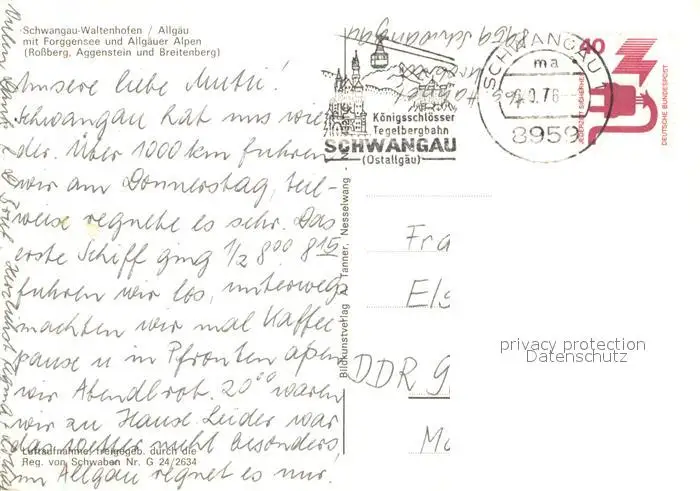 Schwangau-Waltenhofen / Allgäu
mit Forggensee und Allgäuer Alpen
(Roßberg, Aggenstein und Breitenberg)
Unsere liebe Mutti!
Schwangau hat uns wie
der. Über 1000 km fuhren
wir am Donnerstag, teil-
weise regnete es sehr. Das
erste Schiff ging 1/2 8⁰⁰ 8¹⁵
fuhren wir los, unterwegs
machten wir mal Kaffee
pause u in Pfronten aßen
wir Abendbrot. 20⁰⁰ waren
wir zu Hause. Leider war
das Wetter nicht besonders,
im Allgäu regnet es nur.
Luftaufnahme: freigegeb. durch die
Reg. von Schwaben Nr. G 24/2634
Bildkunstverlag A. Tanner, Nesselwang
8959 Schwangau
Königsschlösser
Tegelbergbahn
SCHWANGAU
(Ostallgäu)
SCHWANGAU 1
ma
9.76
8959
40
JEDERZEIT SICHERHEIT
DEUTSCHE BUNDESPOST
Fra
Els
DDR
privacy protection
Datenschutz